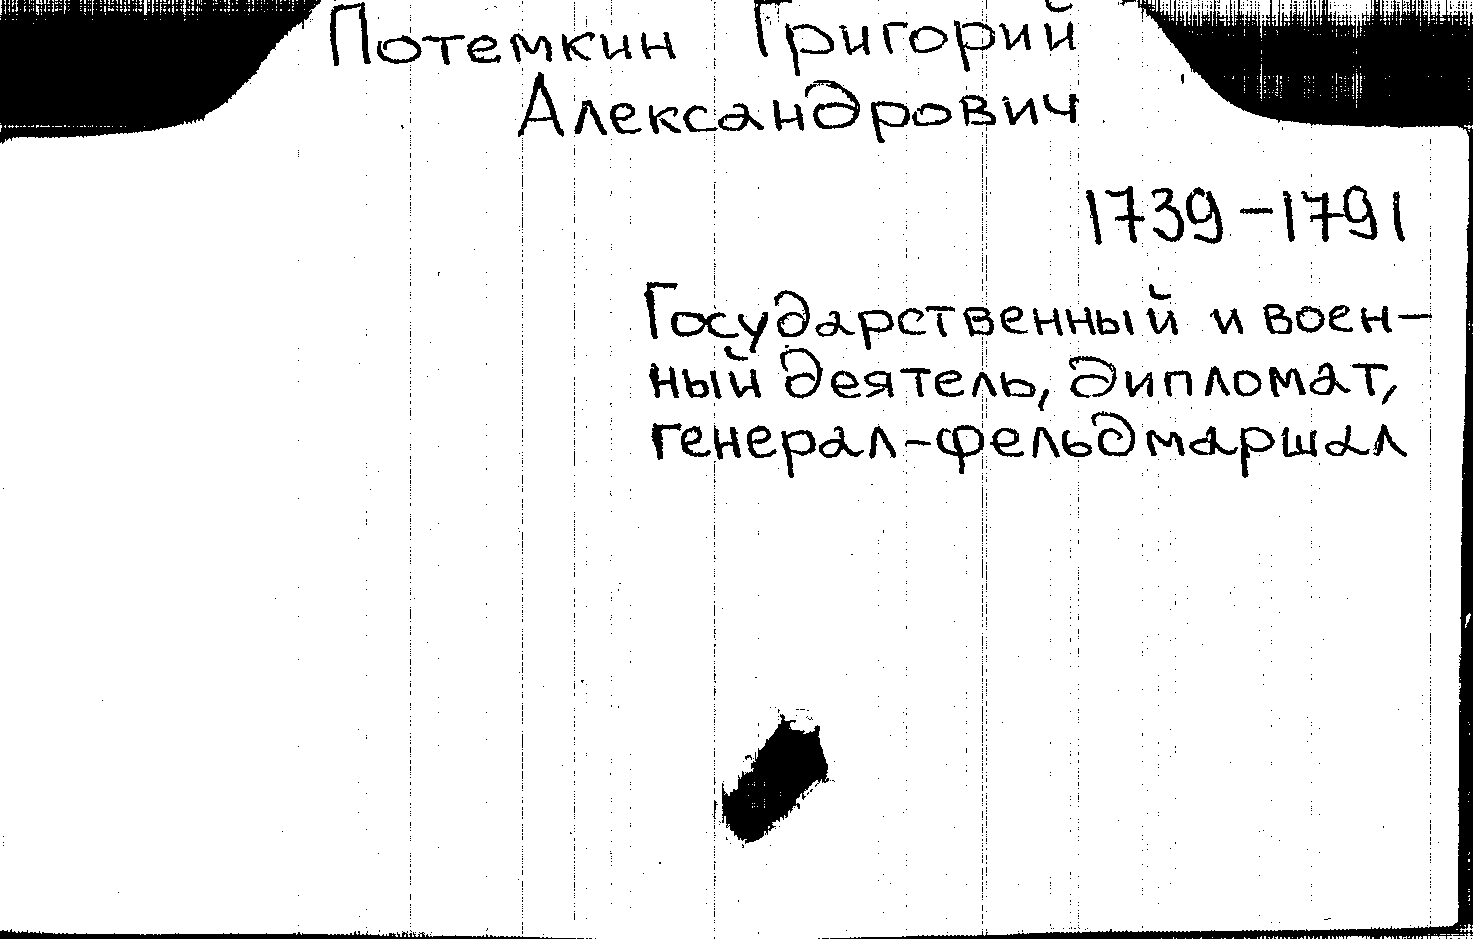 Потемкин Григорий
Александрович
1739-1791
Государственный и воен-
ный деятель, дипломат,
генерал-фельдмаршал